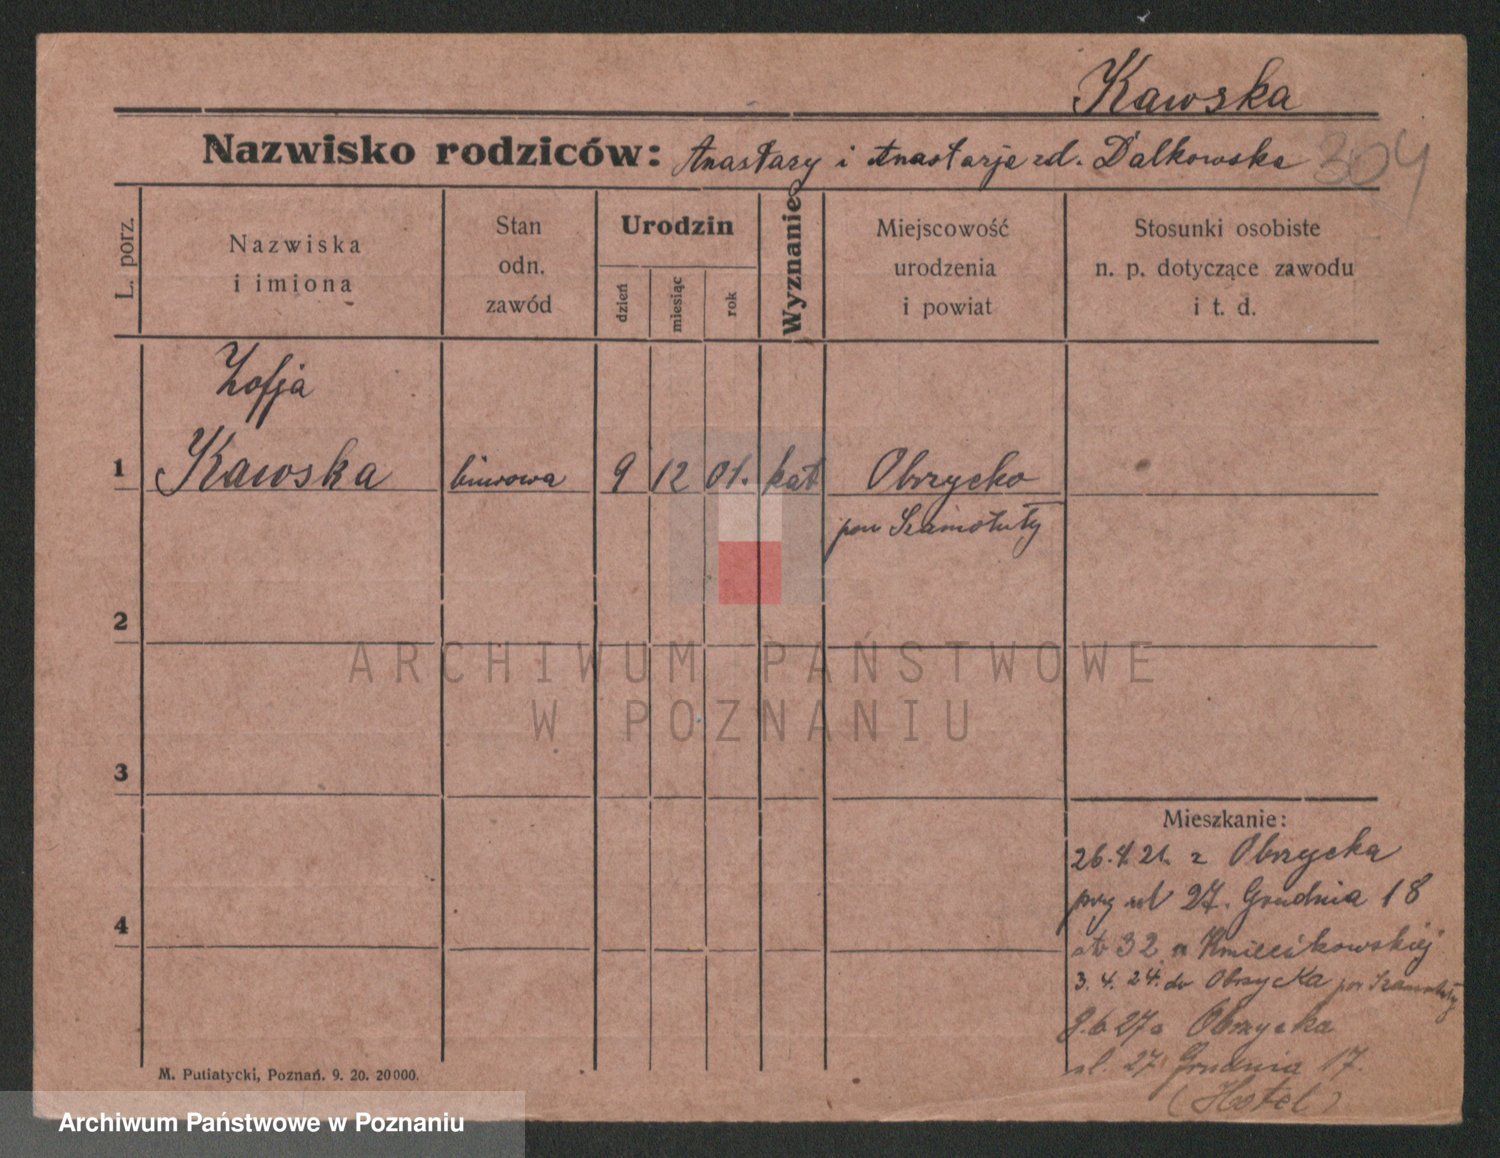 Kawska
Nazwisko rodziców: Anastazy i Anastazja zd. Dalkowska 304
L. porz.
Nazwiska
i imiona
Stan
odn.
zawód
Urodzin
dzień
miesiąc
rok
Wyznanie
Miejscowość
urodzenia
i powiat
Stosunki osobiste
n. p. dotyczące zawodu
i t. d.
Zofja
1 Kawska biurowa 9 12 01. kat Obrzycko
pow Szamotuły
2
3
4
Mieszkanie:
26.4.21. z Obrzycka
27. Grudnia 18
32
3. 4. 24. do Obrzycka pow Szamotuły
27 Obrzycka
ul. 27 Grudnia 17.
(Hotel)
M. Putiatycki, Poznań. 9. 20. 20000.
ARCHIWUM PAŃSTWOWE
W POZNANIU
Archiwum Państwowe w Poznaniu